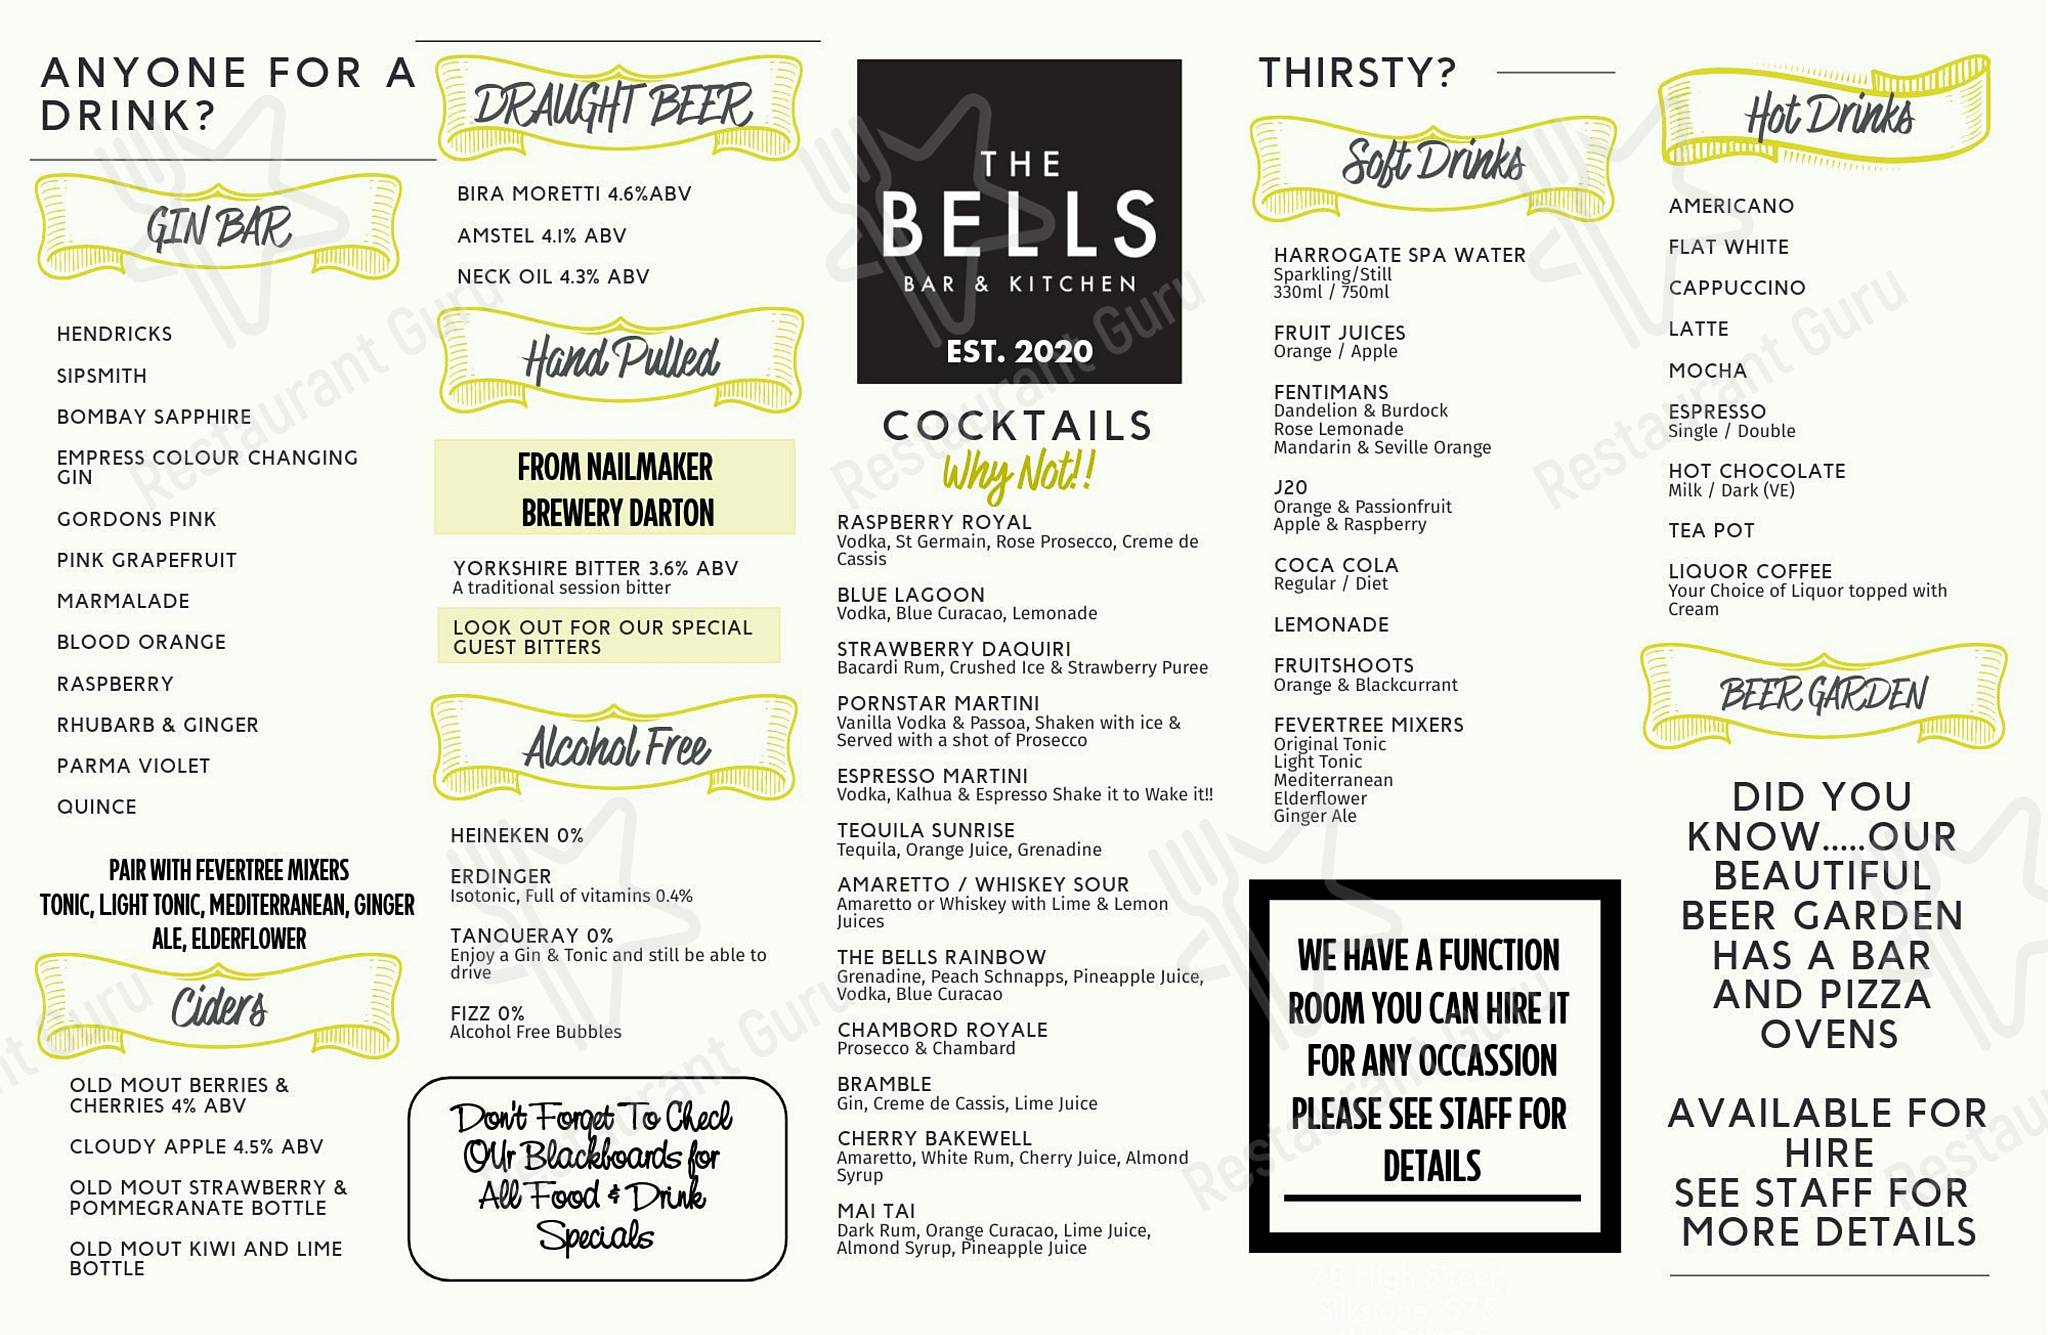 ANYONE FOR A
DRINK?
GIN BAR
HENDRICKS
SIPSMITH
BOMBAY SAPPHIRE
EMPRESS COLOUR CHANGING
GIN
GORDONS PINK
PINK GRAPEFRUIT
MARMALADE
BLOOD ORANGE
RASPBERRY
RHUBARB & GINGER
PARMA VIOLET
QUINCE
PAIR WITH FEVERTREE MIXERS
TONIC, LIGHT TONIC, MEDITERRANEAN, GINGER
ALE, ELDERFLOWER
Ciders
OLD MOUT BERRIES &
CHERRIES 4% ABV
CLOUDY APPLE 4.5% ABV
OLD MOUT STRAWBERRY &
POMMEGRANATE BOTTLE
OLD MOUT KIWI AND LIME
BOTTLE
DRAUGHT BEER
BIRA MORETTI 4.6%ABV
AMSTEL 4.1% ABV
NECK OIL 4.3% ABV
Hand Pulled
FROM NAILMAKER
BREWERY DARTON
YORKSHIRE BITTER 3.6% ABV
A traditional session bitter
LOOK OUT FOR OUR SPECIAL
GUEST BITTERS
Alcohol Free
HEINEKEN 0%
ERDINGER
Isotonic, Full of vitamins 0.4%
TANQUERAY 0%
Enjoy a Gin & Tonic and still be able to
drive
FIZZ 0%
Alcohol Free Bubbles
Don't Forget To Check
OUr Blackboards for
All Food & Drink
Specials
THE
BELLS
BAR & KITCHEN
EST. 2020
COCKTAILS
Why Not!!
RASPBERRY ROYAL
Vodka, St Germain, Rose Prosecco, Creme de
Cassis
BLUE LAGOON
Vodka, Blue Curacao, Lemonade
STRAWBERRY DAQUIRI
Bacardi Rum, Crushed Ice & Strawberry Puree
PORNSTAR MARTINI
Vanilla Vodka & Passoa, Shaken with ice &
Served with a shot of Prosecco
ESPRESSO MARTINI
Vodka, Kalhua & Espresso Shake it to Wake it!!
TEQUILA SUNRISE
Tequila, Orange Juice, Grenadine
AMARETTO / WHISKEY SOUR
Amaretto or Whiskey with Lime & Lemon
Juices
THE BELLS RAINBOW
Grenadine, Peach Schnapps, Pineapple Juice,
Vodka, Blue Curacao
CHAMBORD ROYALE
Prosecco & Chambard
BRAMBLE
Gin, Creme de Cassis, Lime Juice
CHERRY BAKEWELL
Amaretto, White Rum, Cherry Juice, Almond
Syrup
MAI TAI
Dark Rum, Orange Curacao, Lime Juice,
Almond Syrup, Pineapple Juice
THIRSTY?
Soft Drinks
HARROGATE SPA WATER
Sparkling/Still
330ml / 750ml
FRUIT JUICES
Orange / Apple
FENTIMANS
Dandelion & Burdock
Rose Lemonade
Mandarin & Seville Orange
J20
Orange & Passionfruit
Apple & Raspberry
COCA COLA
Regular / Diet
LEMONADE
FRUITSHOOTS
Orange & Blackcurrant
FEVERTREE MIXERS
Original Tonic
Light Tonic
Mediterranean
Elderflower
Ginger Ale
WE HAVE A FUNCTION
ROOM YOU CAN HIRE IT
FOR ANY OCCASSION
PLEASE SEE STAFF FOR
DETAILS
Hot Drinks
AMERICANO
FLAT WHITE
CAPPUCCINO
LATTE
MOCHA
ESPRESSO
Single / Double
HOT CHOCOLATE
Milk / Dark (VE)
TEA POT
LIQUOR COFFEE
Your Choice of Liquor topped with
Cream
BEER GARDEN
DID YOU
KNOW.....OUR
BEAUTIFUL
BEER GARDEN
HAS A BAR
AND PIZZA
OVENS
AVAILABLE FOR
HIRE
SEE STAFF FOR
MORE DETAILS
Restaurant Guru
Restaurant Guru
Restaurant Guru
Restaurant Guru
Restaurant Guru